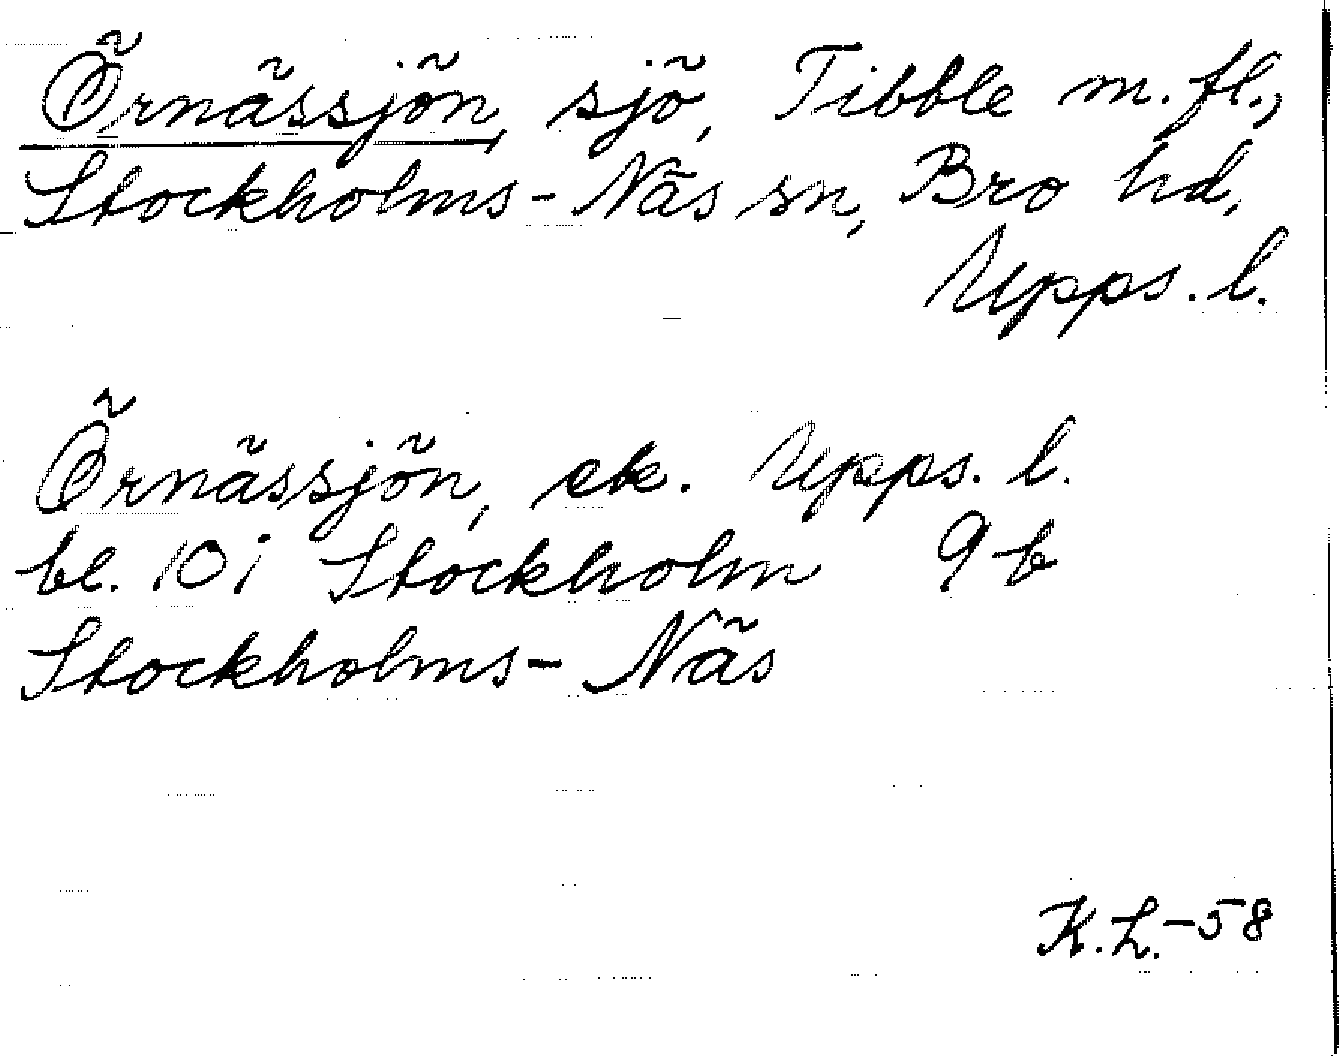 Örnässjön, sjö, Tibble m.fl.,
Stockholms-Näs sn, Bro hd,
Upps. l.
Örnässjön, ek. Upps. l.
bl. 10i Stockholm 9b
Stockholms-Näs
K.L.-58